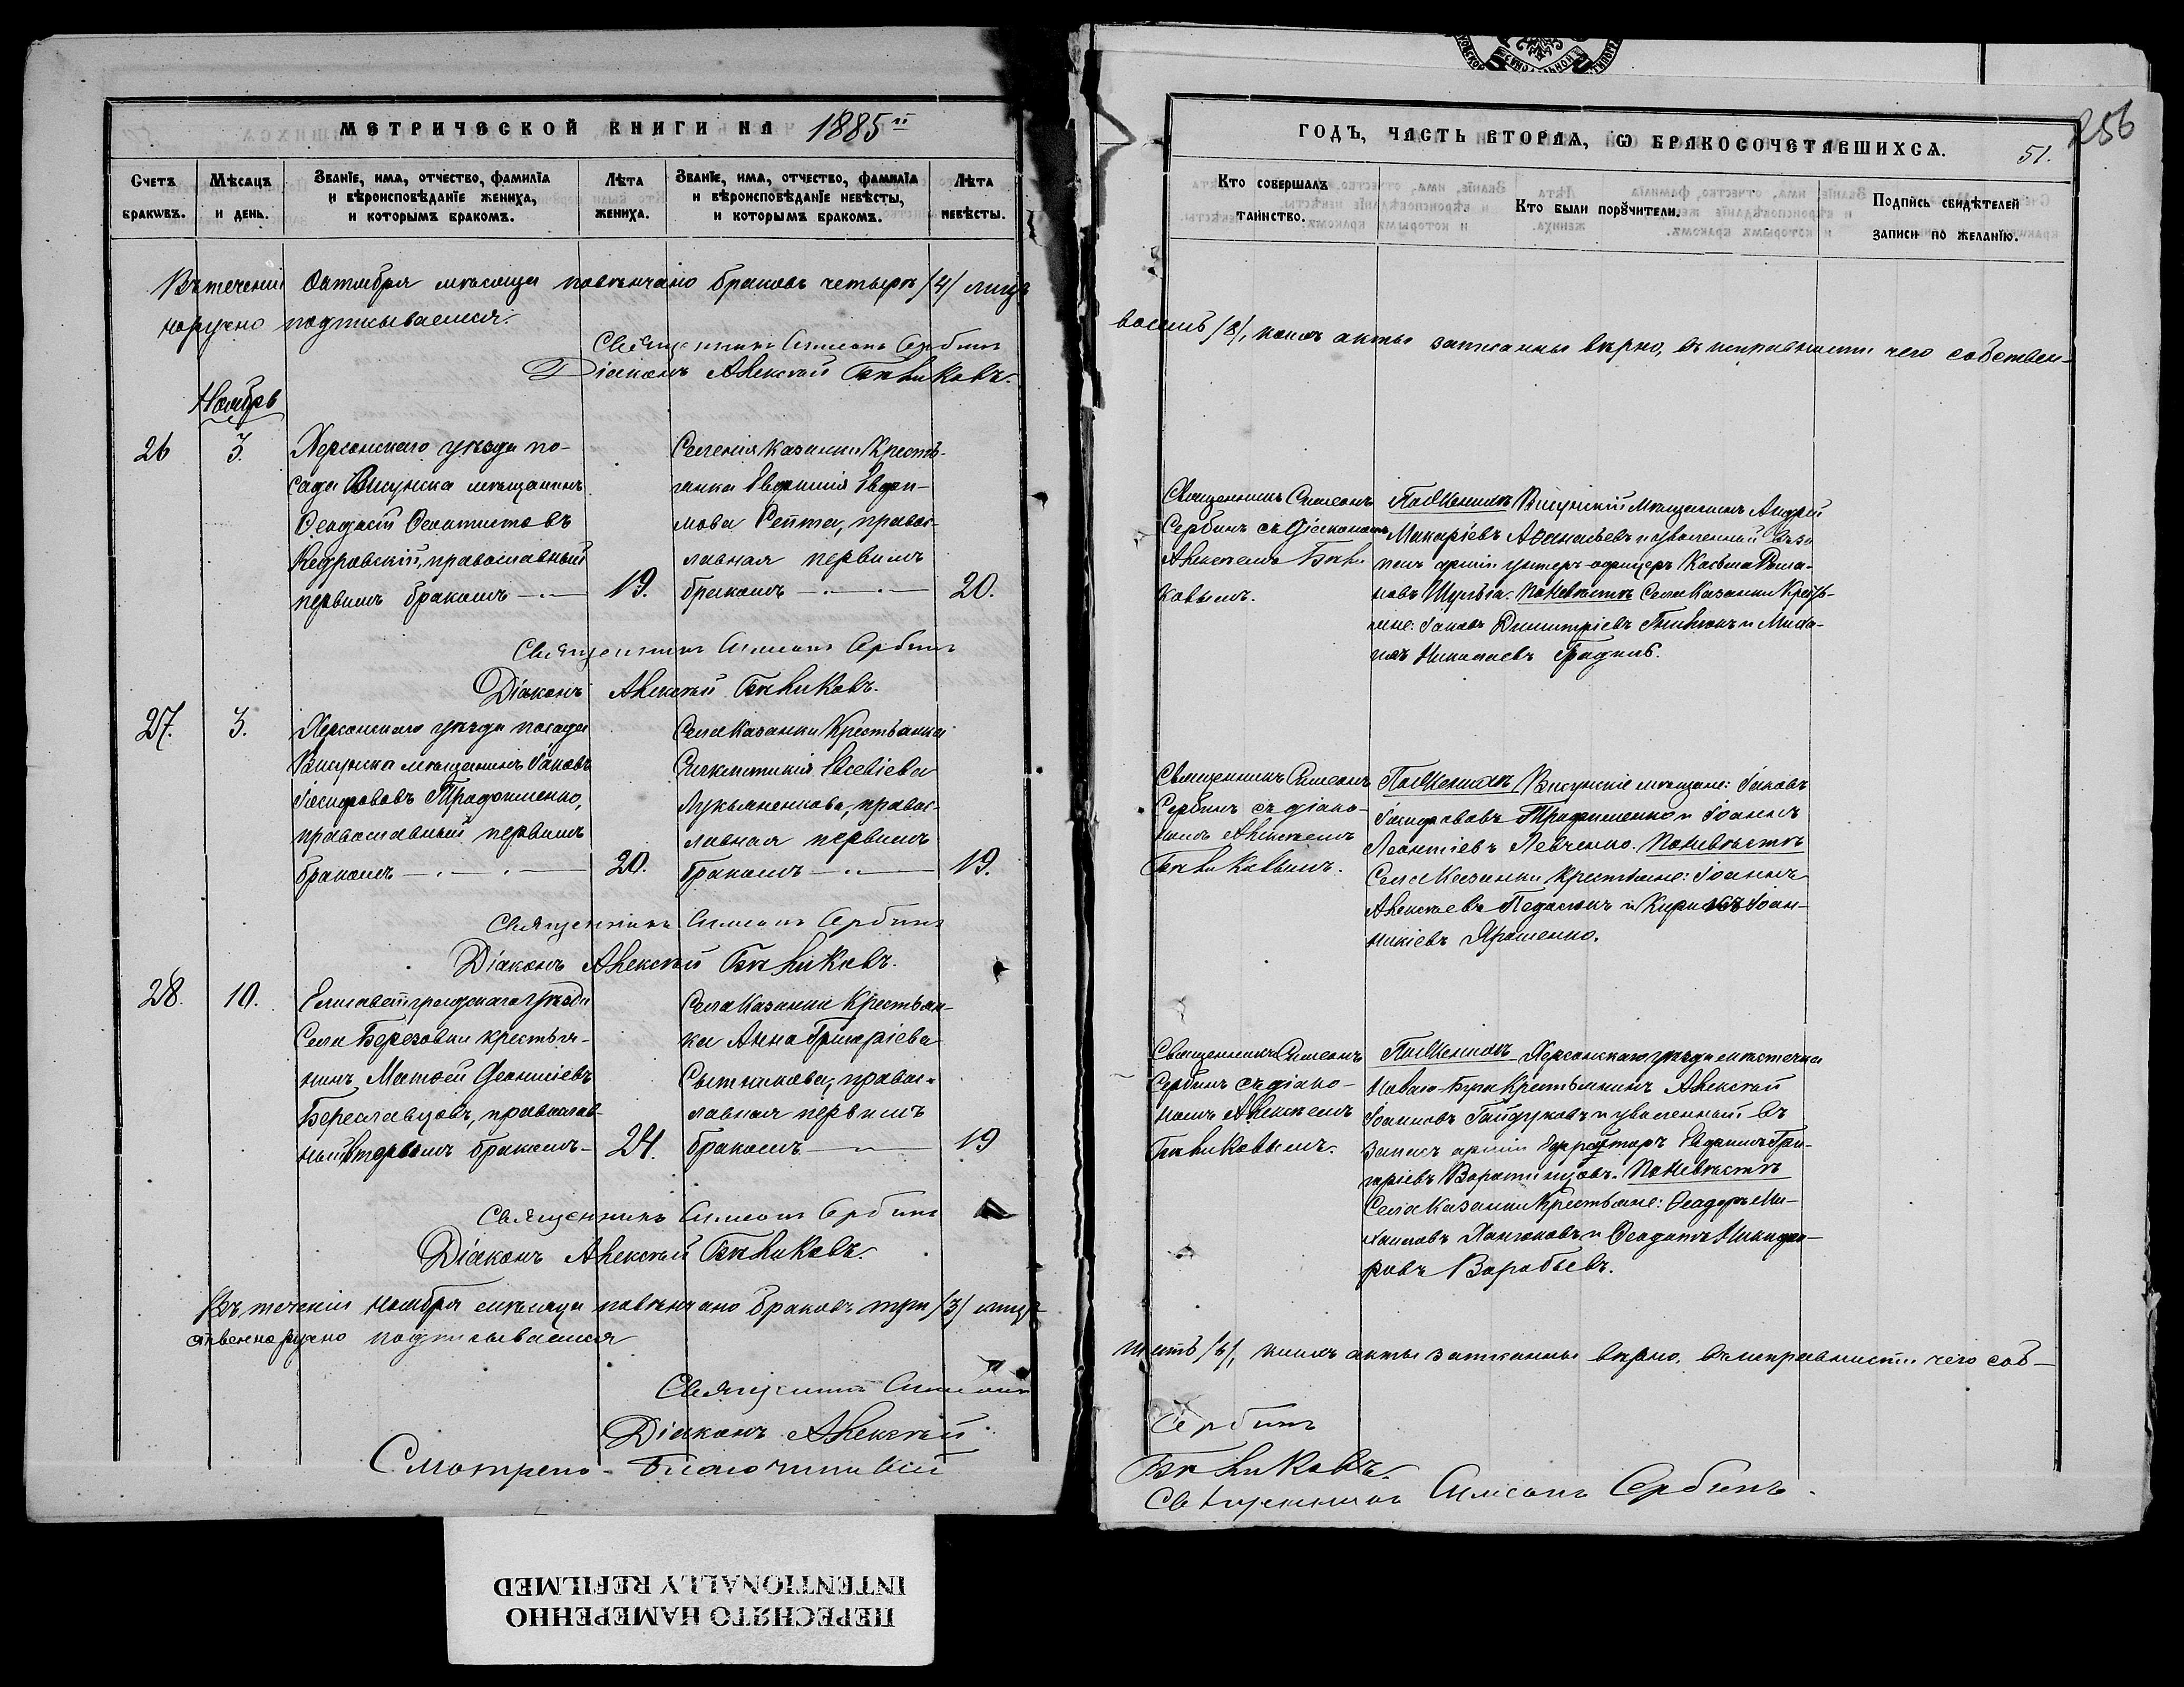 МЕТРИЧЕСКОЙ КНИГИ НА 1885й
Счетъ браковъ.
Мѣсяцъ и день.
Званїе, имя, отчество, фамилїя и вѣроисповѣданїе жениха, и которымъ бракомъ.
Лѣта жениха.
Званїе, имя, отчество, фамилїя и вѣроисповѣданїе невѣсты, и которымъ бракомъ.
Лѣта невѣсты.
Въ теченіи Октября мѣсяца повѣнчано браковъ четыре /4/ лицъ
норучно подписываемся:
Священникъ Симеонъ Сербинъ
Діаконъ Алексѣй Бѣликовъ.
Ноябрь
26
3.
Херсонскаго уѣзда по-
сада Висунска мѣщанинъ
Ѳеодосій Ѳеоктистовъ
Кедровскій, православный
первымъ бракомъ
19.
Селенія Казанки Кресть-
янка Евфимія Евфи-
мова Репта, правос-
лавная первымъ
бракомъ
20.
Священникъ Симеонъ Сербинъ
Діаконъ Алексѣй Бѣликовъ.
27.
3.
Херсонскаго уѣзда посада
Висунска мѣщанинъ Іаковъ
Іосифовъ Трофименко,
православный первымъ
бракомъ
20.
Села Казанки Крестьянка
Синклитикія Евсевіева
Лукьяненкова, правос-
лавная первымъ
бракомъ
19.
Священникъ Симеонъ Сербинъ
Діаконъ Алексѣй Бѣликовъ.
28.
10.
Елисаветградскаго уѣзда
Села Березовки крестья-
нинъ Матѳей Діонисіевъ
Береславцовъ, православ-
ный вторымъ бракомъ
24.
Села Казанки Крестьян-
ка Анна Григоріева
Сытникова, правос-
лавная первымъ
бракомъ
19
Священникъ Симеонъ Сербинъ
Діаконъ Алексѣй Бѣликовъ.
Въ теченіи Ноября мѣсяца повѣнчано браковъ три /3/ лицъ
ственноручно подписываемся
Священникъ Симеонъ
Діаконъ Алексѣй
Смотрено. Благочинный
256
ГОДЪ, ЧАСТЬ ВТОРАЯ, Ѡ БРАКОСОЧЕТАВШИХСЯ.
51.
Кто совершалъ таинство.
Кто были поручители.
Подпись свидѣтелей записи по желанїю.
восемь /8/, коихъ акты записаны вѣрно, въ исправности чего собствен-
Священникъ Симеонъ
Сербинъ съ Діакономъ
Алексѣемъ Бѣли
ковымъ.
По Женихѣ Висунскій Мѣщанинъ Андрей
Макаріевъ Аѳанасьевъ и уволенный въ за
пасъ арміи унтеръ-офицеръ Косьма Рома-
новъ Шульга. По Невѣстѣ Села Казанки Кресть-
яне: Іаковъ Димитріевъ и Миха-
илъ Николаевъ
Священникъ Симеонъ
Сербинъ съ діако-
номъ Алексѣемъ
Бѣликовымъ.
По Женихѣ Висунскіе мѣщане: Іаковъ
Іосифовъ Трофименко и Іоаннъ
Леонтіевъ Левченко. По Невѣстѣ
Села Казанки Крестьяне: Іоаннъ
Алексѣевъ и Кириллъ Іоан-
никіевъ Ярошенко.
Священникъ Симеонъ
Сербинъ съ діако-
номъ Алексѣемъ
Бѣликовымъ.
По Женихѣ Херсонскаго уѣзда мѣстечка
Новаго-Буга Крестьянинъ Алексѣй
Іоанновъ Гайдуковъ и уволенный въ
запасъ арміи Ефрейторъ Евдокимъ Гри-
горіевъ Воротинцовъ. По Невѣстѣ
Села Казанки Крестьяне: Ѳеодоръ Ми-
хаиловъ и Ѳеодотъ Никифо-
ровъ Воробьевъ.
шесть /6/, коихъ акты записаны вѣрно, въ исправности чего соб-
Сербинъ
Бѣликовъ.
Священникъ Симеонъ Сербинъ.
ПЕРЕСНЯТО НАМЕРЕННО
INTENTIONALLY REFILMED